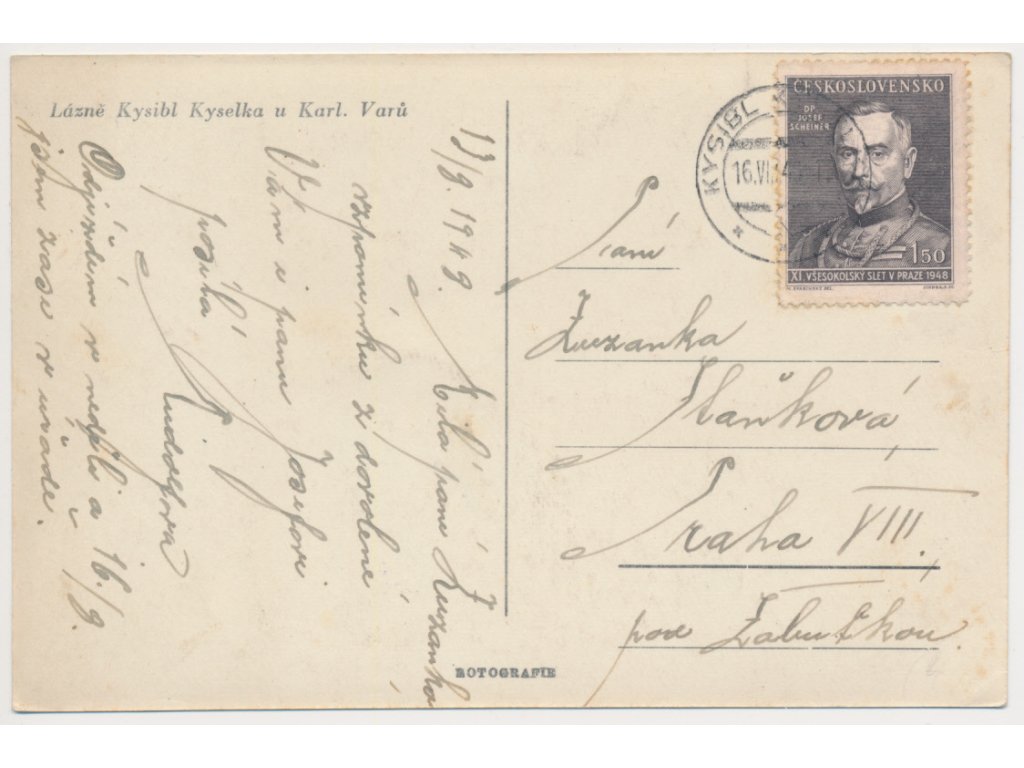 Lázně Kysibl Kyselka u Karl. Varů
13/9. 1949.
Milá paní Zuzanko
vzpomínku z dovolené
Vám i panu Josefovi
posílá
Rudolfova
Odjíždím v neděli a 16./9.
jsem zase v úřadě.
KYSIBL
16.VI
ČESKOSLOVENSKO
DR
JOSEF
SCHEINER
1.50
XI. VŠESOKOLSKÝ SLET V PRAZE 1948
Paní
Zuzanka
Praha VIII.,
pod Labuťkou
ROTOGRAFIE